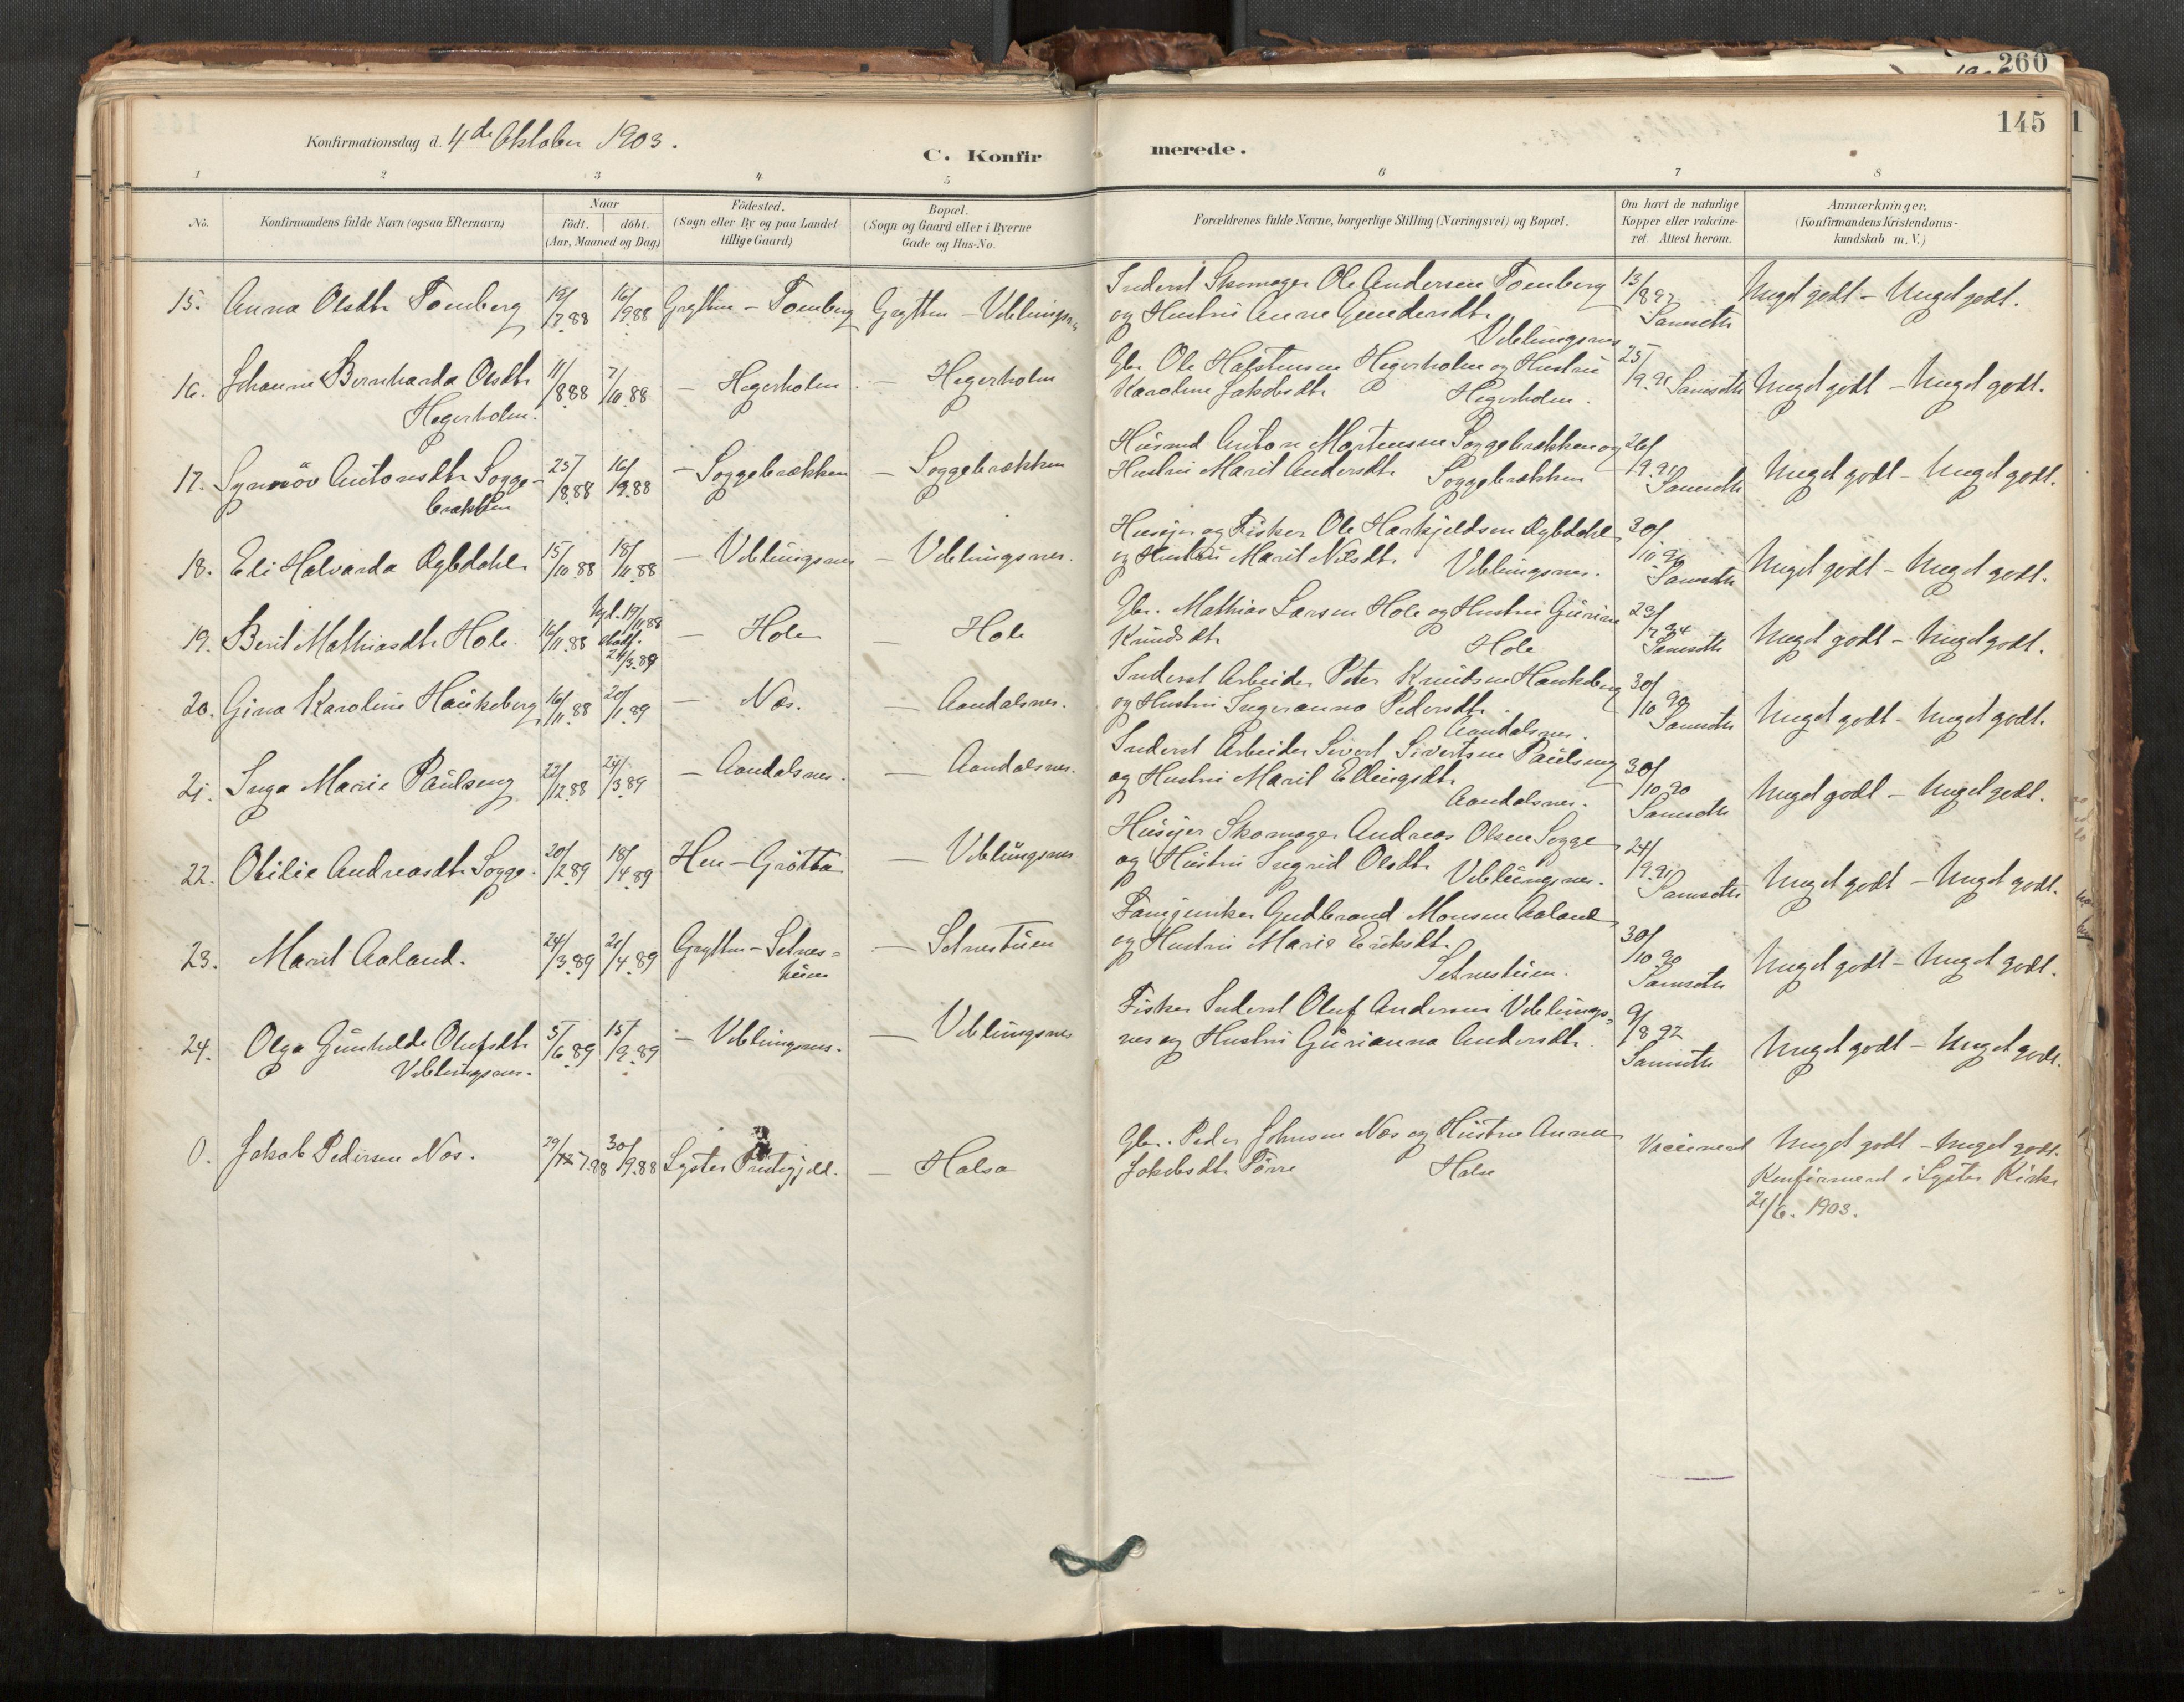 260
145
Konfirmationsdag d. 4de Oktober 1903.
C. Konfir merede.
1 2 3 4 5 6 7 8
No.
Konfirmandens fulde Navn (ogsaa Efternavn)
Naar
födt. döbt.
(Aar, Maaned og Dag)
Födested.
(Sogn eller By og paa Landet
tillige Gaard)
Bopæl.
(Sogn og Gaard eller i Byerne
Gade og Hus-No.
Forældrenes fulde Navne, borgerlige Stilling (Næringsvei) og Bopæl.
Om havt de naturlige
Kopper eller vakcine-
ret. Attest herom.
Anmærkninger.
(Konfirmandens Kristendoms-
kundskab m. V.)
15. Anna Olsdtr Tomberg 7.88 16/9.88 Grytten - Tomberg Grytten - Veblungsn.
Inderst Skomager Ole Andersen Tomberg
og Hustru Anne Gundersdtr
Veblungsnes
13/8 92 Sanseth
Meget godt - Meget godt.
16. Johanne Bernharda Olsdtr
Hegerholm.
11/8.88 7/10.88 - Hegerholm - Hegerholm
Gbr. Ole Halstensen Hegerholm og Hustru
Karoline Jakobsdtr Hegerholm.
25/9.91 Sanseth
Meget godt - Meget godt.
17. Synnöv Antonsdtr Sogge-
brækken
25/8.88 16/9.88 - Soggebrækken - Soggebrækken
Husmd Anton Mortensen Soggebrækken og
Hustru Marit Andersdtr Soggebrækken
26/9.91 Sanseth
Meget godt - Meget godt.
18. Eli Halvarda Rybdahl 15/10.88 18/11.88 - Veblungsnes - Veblungsnes.
Husejer og Fisker Ole Harkjeldsen Rybdahl
og Hustru Marit Nilsdtr Veblungsnes.
30/10 90 Sanseth
Meget godt - Meget godt.
19. Berit Mathiasdtr Hole. 16/11.88 19/11 88
stadf.
24/3.89 - Hole - Hole
Gbr. Mathias Larsen Hole og Hustru Gurine
Knudsdtr Hole
23/ 94 Sanseth
Meget godt - Meget godt.
20. Gina Karoline Haukeberg 16/11.88 20/1.89 - Næs. - Aandalsnes.
Inderst Arbeider Peter Knudsen Haukeberg
og Hustru Ingeranna Pedersdtr.
Aandalsnes.
30/10 90 Sanseth
Meget godt - Meget godt.
21. Inga Marie Paulseng 22/12.88 24/3.89 - Aandalsnes. - Aandalsnes.
Inderst Arbeider Sivert Sivertsen Paulseng
og Hustru Marit Ellingsdtr
Aandalsnes.
30/10 90 Sanseth
Meget godt - Meget godt.
22. Otilie Andreasdtr Sogge. 20/2.89 18/4.89 Hen - Grötta - Veblungsnes
Husejer Skomager Andreas Olsen Sogge
og Hustru Ingrid Olsdtr Veblungsnes.
24/9.91 Sanseth
Meget godt - Meget godt.
23. Marit Aaland. 24/3.89 21/4.89 Grytten - Setnes=
tuen - Setnestuen
Gudbrand Monsen Aaland
og Hustru Marie Eriksdtr
Setnestuen.
30/10 90 Sanseth
Meget godt - Meget godt.
24. Olga Gunhilde Olufsdtr
Veblungsnes.
5/6.89 15/9.89 - Veblungsnes. - Veblungsnes
Fisker Inderst Oluf Andersen Veblungs=
nes og Hustru Gurianna Andersdtr.
9/8 92 Sanseth
Meget godt - Meget godt.
0. Jakob Pedersen Næs. 29/ 7.88 30/9.88 Lyster Prestegjeld. - Halsa
Gbr. Peder Johnsen Næs og Hustru Anna
Jakobsdtr Halse
Vaccineret
Meget godt - Meget godt.
Konfirmeret i Lyster Kirke
21/6. 1903.